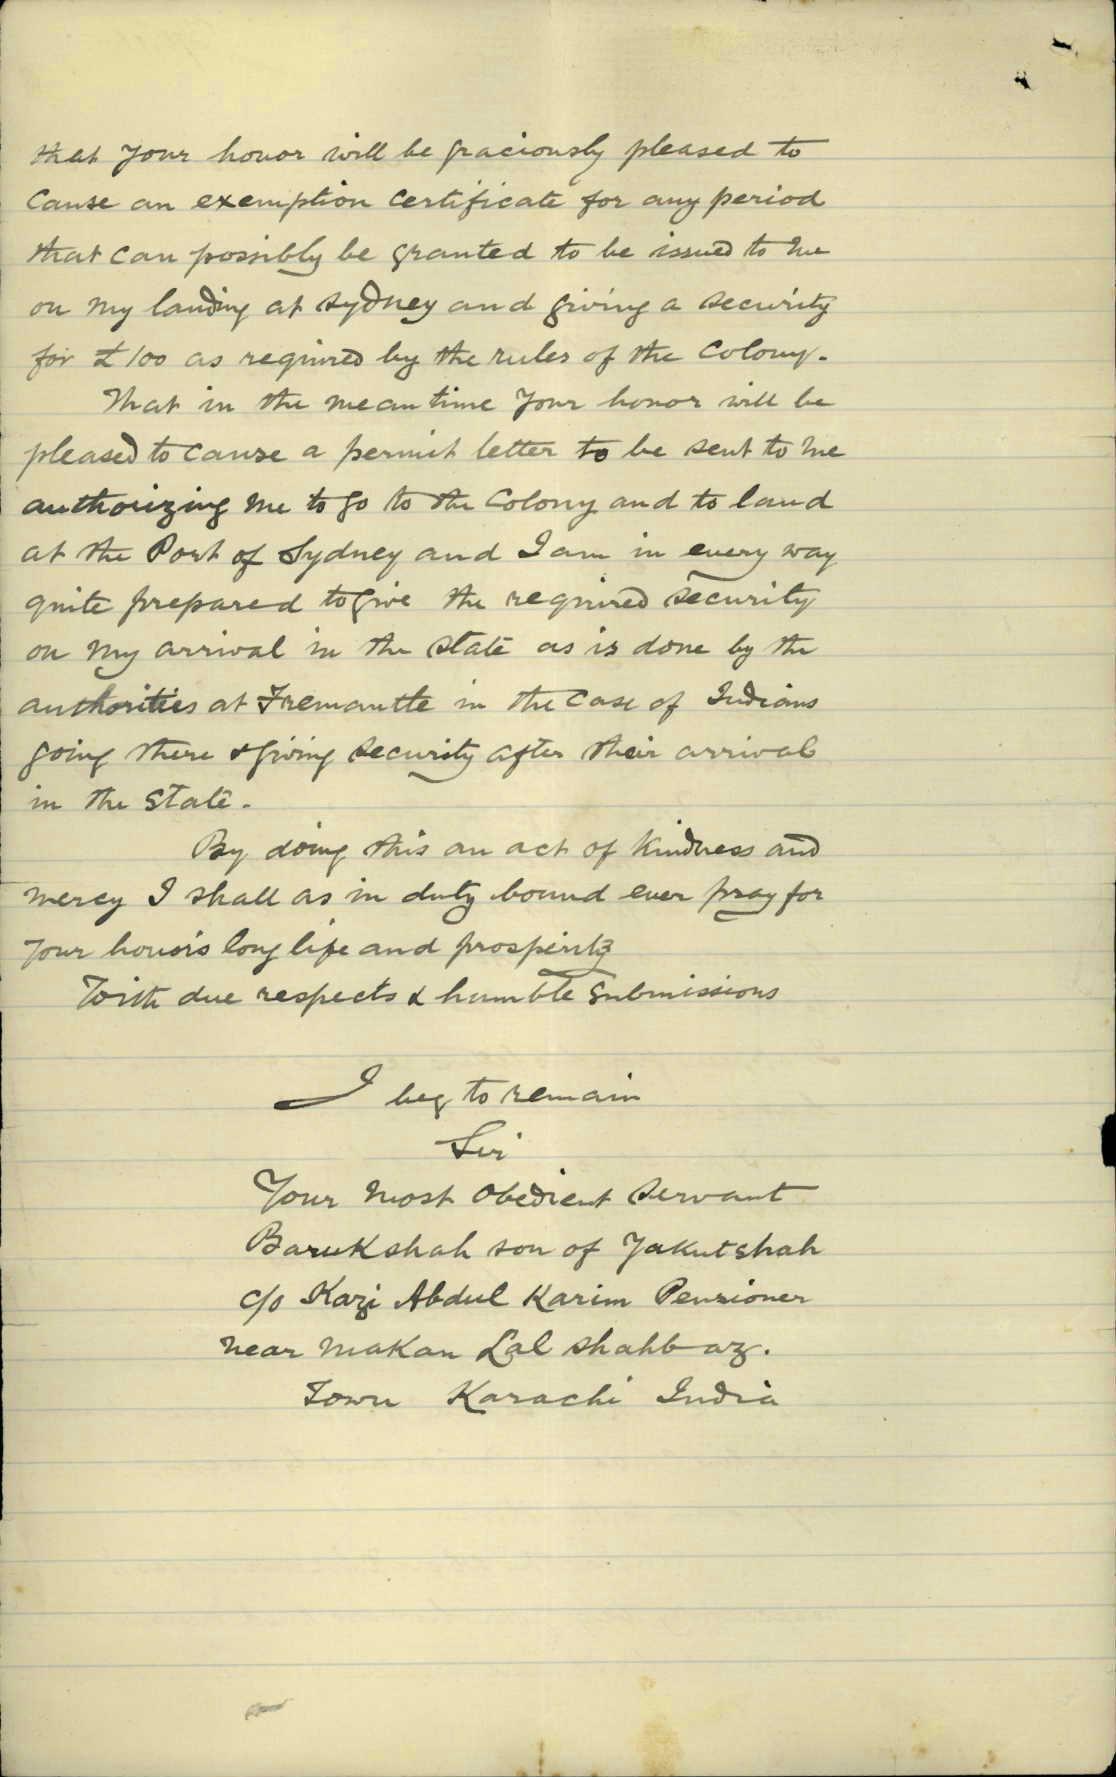 that your honor will be graciously pleased to
cause an exemption certificate for any period
that can possibly be granted to be issued to me
on my landing at sydney and giving a security
for £100 as required by the rules of the Colony.
That in the meantime your honor will be
pleased to cause a permit letter to be sent to me
authorizing me to go to the Colony and to land
at the Port of Sydney and I am in every way
quite prepared to give the required security
on my arrival in the state as is done by the
authorities at Fremantle in the case of Indians
going there & giving security after their arrival
in the state.
By doing this an act of kindness and
mercy I shall as in duty bound ever pray for
your honor's long life and prosperity
With due respects & humble submissions
I beg to remain
Sir
Your most obedient servant
Baruk shah son of Yakut shah
c/o Kazi Abdul Karim Pensioner
near makan Lal shahbaz.
Town Karachi India